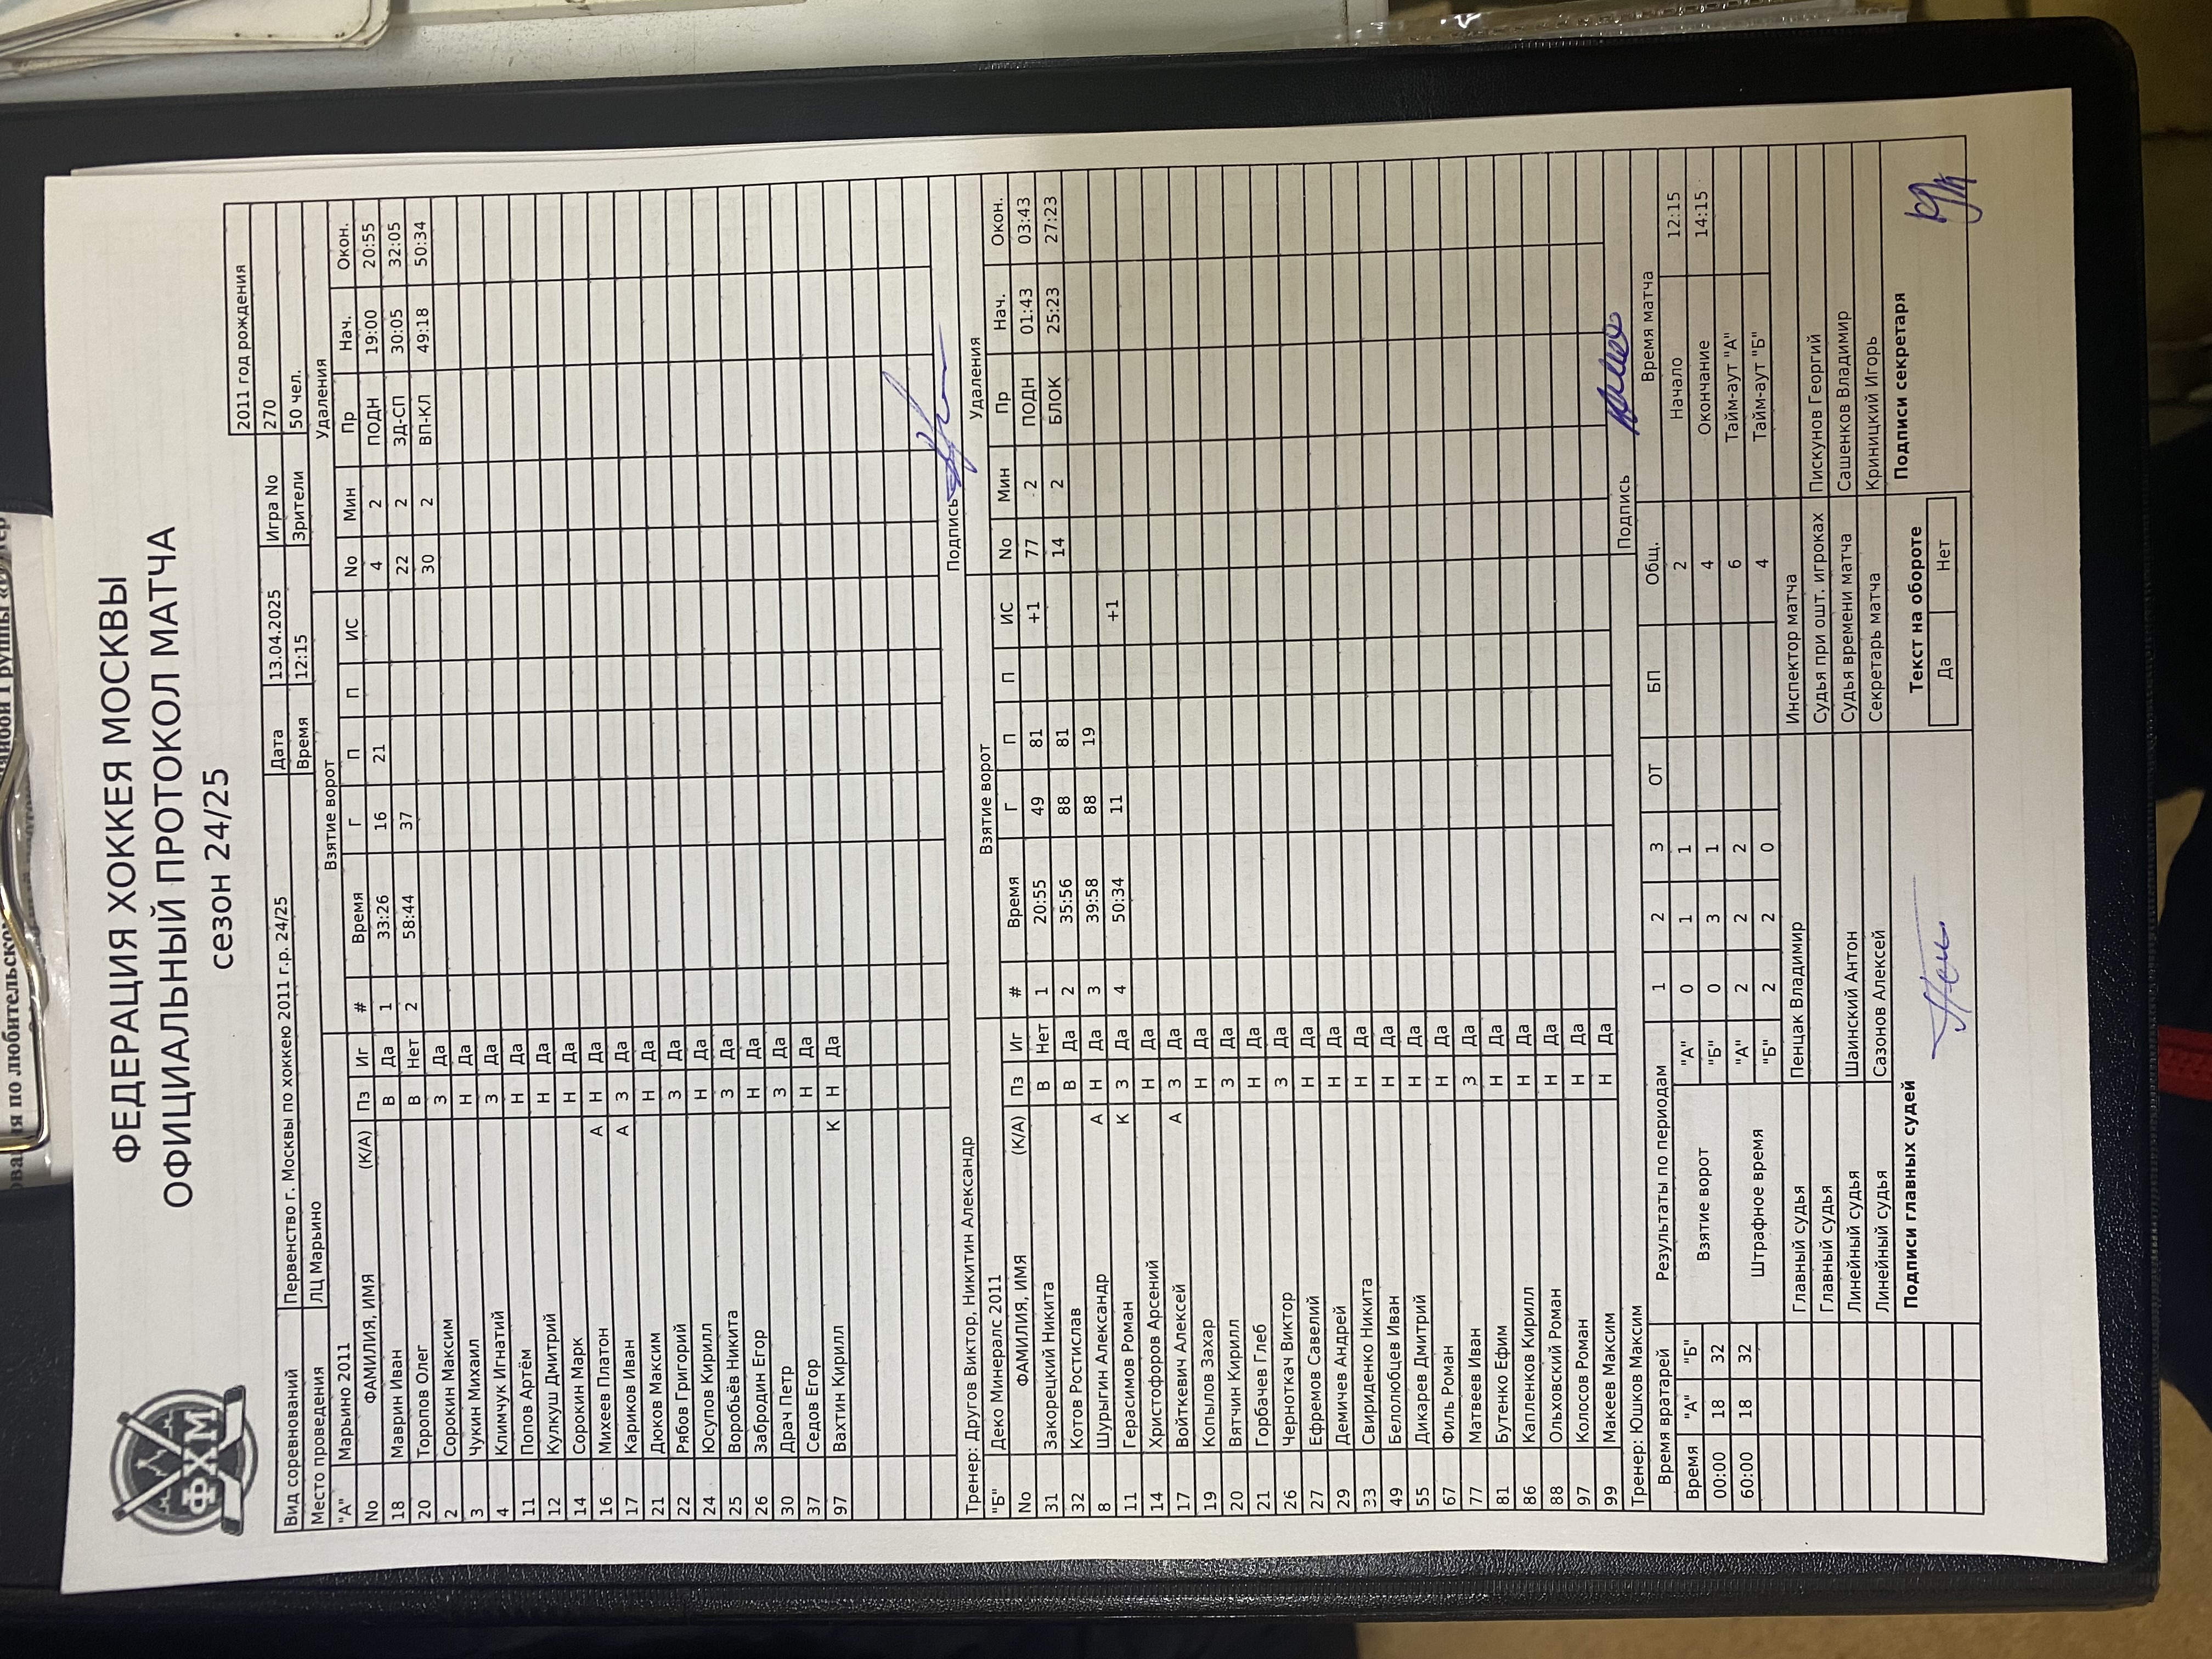 ФХМ
ФЕДЕРАЦИЯ ХОККЕЯ МОСКВЫ
ОФИЦИАЛЬНЫЙ ПРОТОКОЛ МАТЧА
сезон 24/25
2011 год рождения
Вид соревнований Первенство г. Москвы по хоккею 2011 г.р. 24/25 Дата 13.04.2025 Игра No 270
Место проведения ЛЦ Марьино Время 12:15 Зрители 50 чел.
"А" Марьино 2011 Взятие ворот Удаления
No ФАМИЛИЯ, ИМЯ (К/А) Пз Иг # Время Г П П ИС No Мин Пр Нач. Окон.
18 Маврин Иван В Да 1 33:26 16 21 4 2 ПОДН 19:00 20:55
20 Торопов Олег В Нет 2 58:44 37 22 2 ЗД-СП 30:05 32:05
2 Сорокин Максим З Да 30 2 ВП-КЛ 49:18 50:34
3 Чукин Михаил Н Да
4 Климчук Игнатий З Да
11 Попов Артём Н Да
12 Кулкуш Дмитрий Н Да
14 Сорокин Марк Н Да
16 Михеев Платон А Н Да
17 Кариков Иван А З Да
21 Дюков Максим Н Да
22 Рябов Григорий З Да
24 Юсупов Кирилл Н Да
25 Воробьёв Никита З Да
26 Забродин Егор Н Да
30 Драч Петр З Да
37 Седов Егор Н Да
97 Вахтин Кирилл К Н Да
Тренер: Другов Виктор, Никитин Александр Подпись
"Б" Деко Минералс 2011 Взятие ворот Удаления
No ФАМИЛИЯ, ИМЯ (К/А) Пз Иг # Время Г П П ИС No Мин Пр Нач. Окон.
31 Закорецкий Никита В Нет 1 20:55 49 81 +1 77 2 ПОДН 01:43 03:43
32 Котов Ростислав В Да 2 35:56 88 81 14 2 БЛОК 25:23 27:23
8 Шурыгин Александр А Н Да 3 39:58 88 19
11 Герасимов Роман К З Да 4 50:34 11 +1
14 Христофоров Арсений Н Да
17 Войткевич Алексей А З Да
19 Копылов Захар Н Да
20 Вятчин Кирилл З Да
21 Горбачев Глеб Н Да
26 Черноткач Виктор З Да
27 Ефремов Савелий Н Да
29 Демичев Андрей Н Да
33 Свириденко Никита Н Да
49 Белолюбцев Иван Н Да
55 Дикарев Дмитрий Н Да
67 Филь Роман Н Да
77 Матвеев Иван З Да
81 Бутенко Ефим Н Да
86 Капленков Кирилл Н Да
88 Ольховский Роман Н Да
97 Колосов Роман Н Да
99 Макеев Максим Н Да
Тренер: Юшков Максим Подпись
Время вратарей Результаты по периодам 1 2 3 ОТ БП Общ. Время матча
Время "А" "Б" Взятие ворот "А" 0 1 1 2 Начало 12:15
00:00 18 32 "Б" 0 3 1 4 Окончание 14:15
60:00 18 32 Штрафное время "А" 2 2 2 6 Тайм-аут "А"
"Б" 2 2 0 4 Тайм-аут "Б"
Главный судья Пенцак Владимир Инспектор матча
Главный судья Судья при ошт. игроках Пискунов Георгий
Линейный судья Шаинский Антон Судья времени матча Сашенков Владимир
Линейный судья Сазонов Алексей Секретарь матча Криницкий Игорь
Подписи главных судей Текст на обороте Подписи секретаря
Да Нет